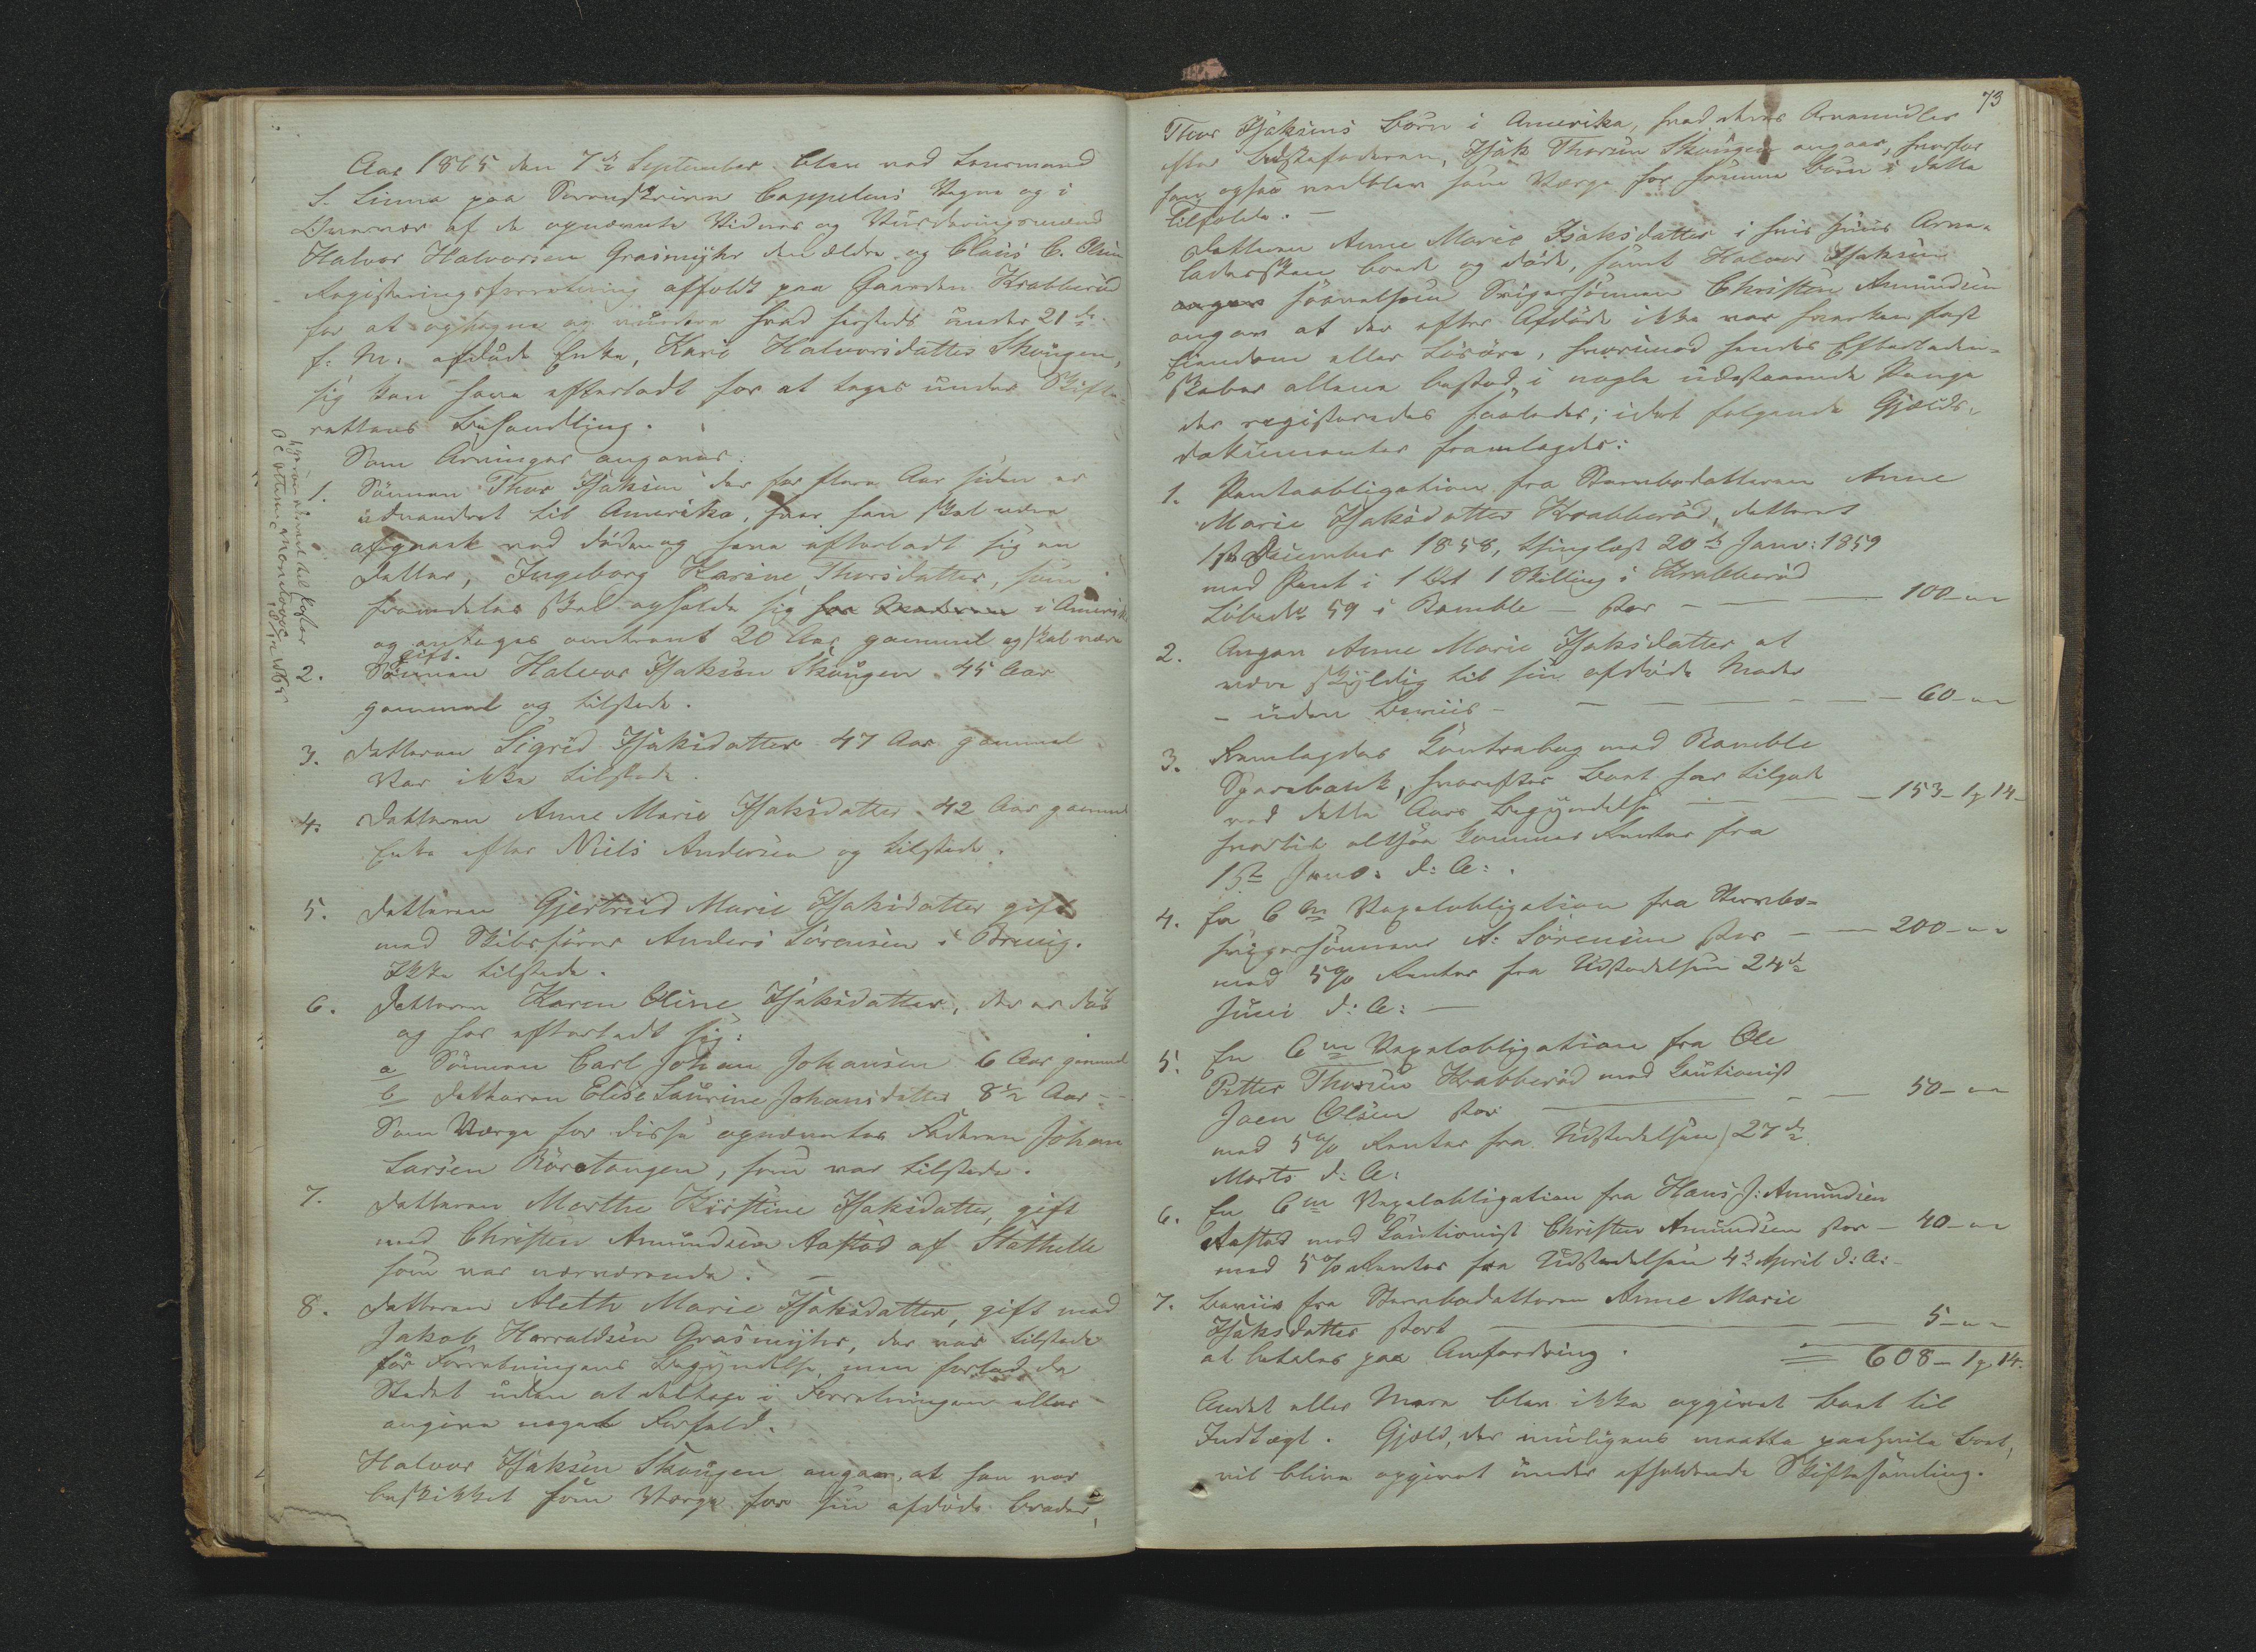 Aar 1865 den 7de September blev ved Lensmand
S. Linna paa Sorenskriver Cappelens Vegne og i
Overvær af de opnævnte Vidner og Vurderingsmænd
Halvor Halvorsen Grasmyhr den ældre og Claus C. Olsen
Registreringsforretning afholdt paa Gaarden Krabberød
for at optegne og vurdere hvad hersteds under 21de
f: M: afdøde Enke, Kari Halvorsdatter Skougen,
sig kan have efterladt for at tages under Skifte-
rettens Behandling.
Som Arvinger angaves:
1. Sønnen Thor Isaksen der for flere Aar siden er
udvandret til Amerika, hvor han skal være
afgaaet ved døden og have efterladt sig en
datter, Ingeborg Karine Thorsdatter, som
fremdeles skal opholde sig i Amerika
og antages omtrent 20 Aar gammel og skal være
gift.
2. Sønnen Halvor Isaksen Skougen 45 Aar
gammel og tilstede.
3. datteren Sigrid Isaksdatter 47 Aar gammel
Var ikke tilstede.
4. datteren Anne Marie Isaksdatter 42 Aar gammel
Enke efter Niels Andersen og tilstede.
5. datteren Gjertrud Marie Isaksdatter gift
med Skibsfører Anders Sørensen i Brevig.
Ikke tilstede.
6. datteren Karen Oline Isaksdatter, der er død
og har efterladt sig:
a Sønnen Carl Johan Johansen 6 Aar gammel
b datteren Elise Laurine Johansdatter 8 1/2 Aar --
Som Værge for disse opnævntes Faderen Johan
Larsen Røretangen, som var tilstede.
7. datteren Marthe Kirstine Isaksdatter, gift
med Christen Amundsen Aastad af Stathelle
som var nærværende. —
8. datteren Aleth Marie Isaksdatter, gift med
Jakob Harraldsen Grasmyhr, der var tilstede
før Forretningens Begyndelse, men forlod da
Stedet uden at deltage i Forretningen eller
angive noget Forfald.
Halvor Isaksen Skougen angav, at han var
beskikket som Værge for sin afdøde broder,
73
Thor Isaksens Børn i Amerika, hvad deres Arvemidler
efter Bedstefaderen, Isak Thorsen Skougen angaar, hvorfor
han ogsaa vedblev som Værge for samme Børn i dette
Tilfælde. —
Datteren Anne Marie Isaksdatter i hvis Huus Arve-
ladersken boede og døde, samt Halvor Isaksen
saavelsom Svigersønnen Christen Amundsen
angav at der efter Afdøde ikke var hverken fast
Eiendom eller Løsøre, hvorimod hendes Efterladen-
skaber allene bestod i nogle udestaaende Penge
der registreredes saaledes, idet følgende Gjælds-
dokumenter fremlagdes:
1. Panteobligation fra Stervbodatteren Anne
Marie Isaksdatter Krabberød, dateret
1ste December 1858, thinglæst 20de Janv: 1859
med Pant i 1 Ort 1 Skilling i Krabberød
Løbe No 59 i Bamble — stor — — — 100 - " "
2. Angav Anne Marie Isaksdatter at
være skyldig til sin afdøde Moder
- uden Beviis - — — — — 60 - " "
3. Fremlagdes Contrabog med Bamble
Sparebank, hvorefter Boet har tilgode
ved dette Aars Begyndelse — — — 153 - 1 " 14 -
hvortil altsaa kommer Renter fra
1ste Janv: d: A: .
4. En Vexelobligation fra Stervbo-
svigersønnen A: Sørensen stor - — 200 - " "
med 5% Renter fra Udstedelsen 24de
Juni d: A: —
5. En Vexelobligation fra Ole
Petter Thorsen Krabberød med Cautionist
Joen Olsen stor — — 50 - " "
med 5% Renter fra Udstedelsen 27de
Marts d: A:
6. En Vexelobligation fra Hans J: Amundsen
Aastad med Cautionist Christen Amundsen stor — 40 - " "
med 5% Renter fra Udstedelsen 4de April d: A: -
7. Beviis fra Stervbodatteren Anne Marie
Isaksdatter stort — — 5 - " "
at betales paa Anfordring. = 608 - 1 " 14.
Andet eller Mere blev ikke opgivet Boet til
Indtægt. Gjæld, der muligens maatte paahvile Boet,
vil blive opgivet under afholdende Skiftesamling.